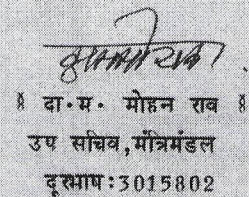 दा॰म॰ मोहन राव
उप सचिव,मंत्रिमंडल
दूरभाष:3015802